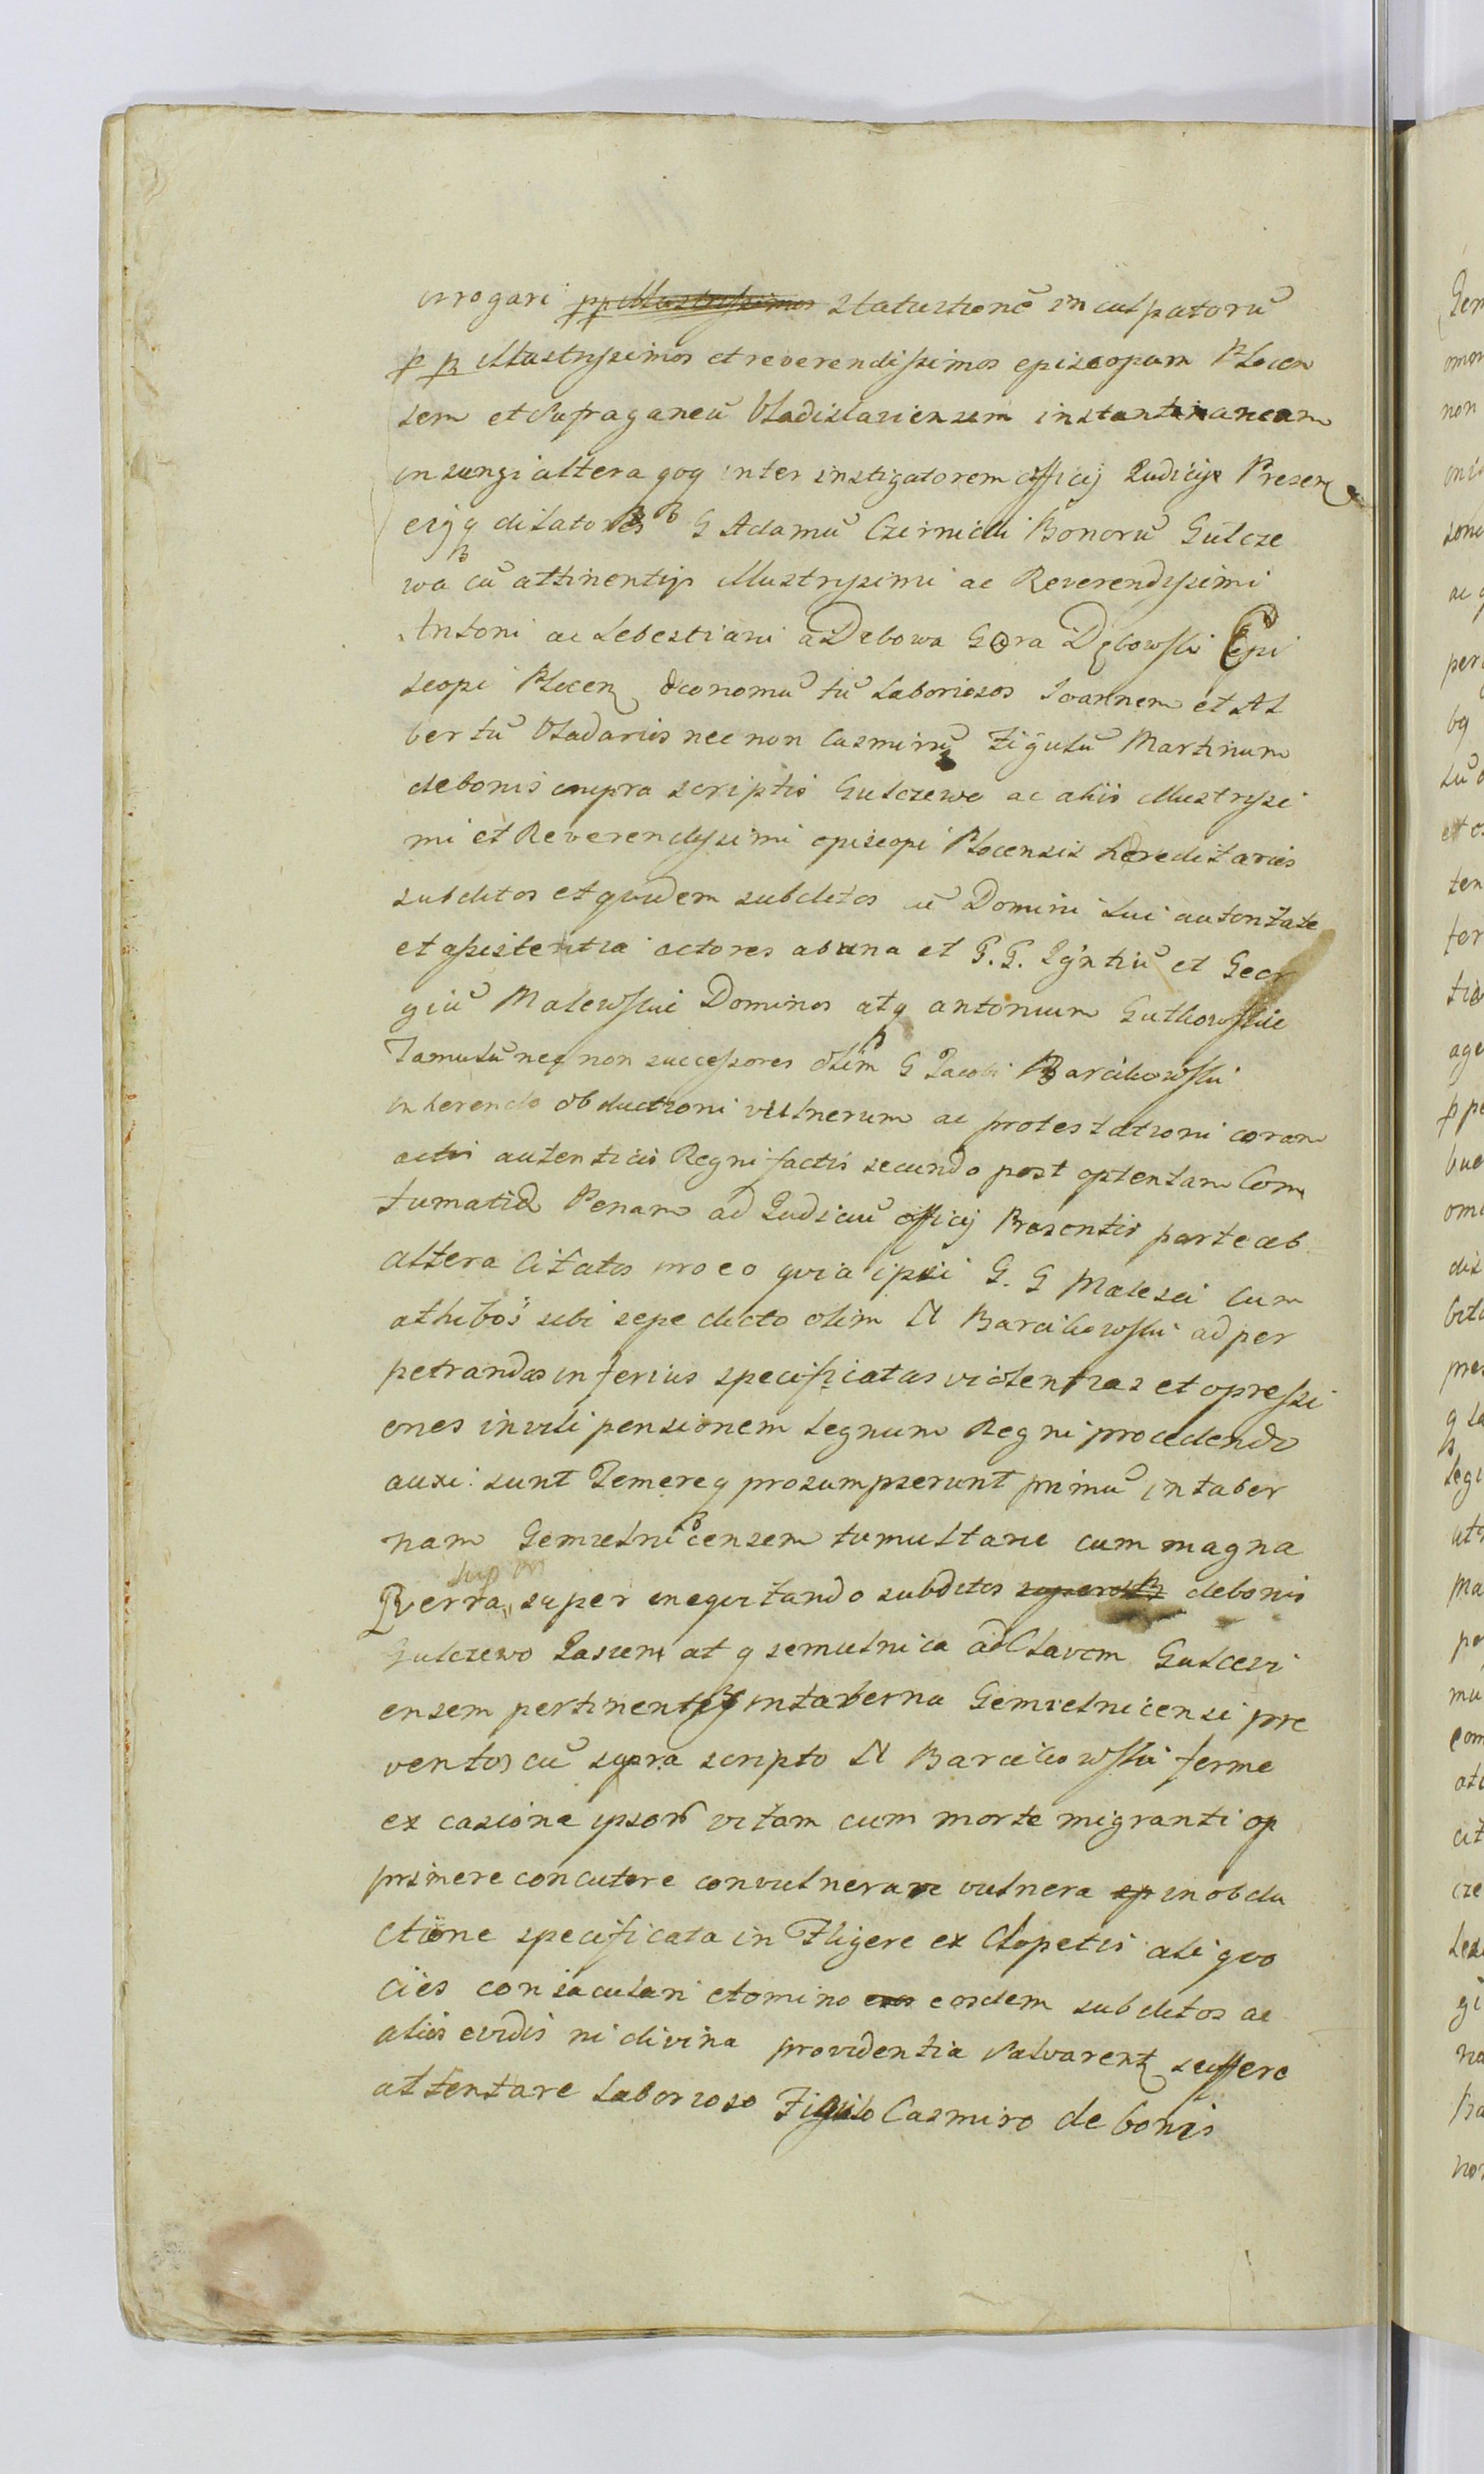 irrogari pp illustrissimos statutione inculpatorũ
p p illustryssimos et reverendissimos episcopum Plocen
sem et Sufraganeũ Vladislaviensem instantanaeam
insungi altera qoq inter instigatorem officij Judicij Presen
eijq dilatores G Adamũ Czirnicki Bonorũ Gulcze
wa cũ attinentijs illustrysimi ac Reverendysimi
Antoni ac Sebestiani a Debowa Gora Dębowski Epi
scopi Plocen oeconomũ tũ laboriosos Joannem et Al
bertũ Vladariis nec non Casmirũ Figulũ Martinum
de bonis supra scriptis Gulczewo ac aliis illustrysi
mi et Reverendysimi episcopi Plocensis hereditariis
subditos et quidem subditos cũ Domini sui autoritate
et assistentia actores ab una et G. G. Igntiũ et Geor
giũ Malewskie Dominos atq antonium Gutkowskie
Famulũ neq non successores olim G Jacobi Barcikowski
inherendo obductioni vulnerum ac protestationi coram
actis autenticis Regni factis secundo post optentam Con
tumatia Penam ad Judiciũ officij Presentis parte ab
altera Citatos pro eo quia ipsi G. G Malesci cum
athibos sibi sepe dicto olim N Barcikowski ad per
petrandas inferius specificatas violentias et opressi
ones in vili pensionem legnum Regni procedendo
ausi sunt Temereq prosumpserunt primũ in taber
nam Gemielnicensem tumultarie cum magna
sup
super inequitando subditos de bonis
Gulczewo Jasien at q semielnica ad Clavem Gulcevi
ensem pertinent in taberna Gemielnicensi pre
ventos cũ supra scripto N Barcikowski ferme
ex casione ipsorũ vitam cum morte migranti op
primere concutere convulnerare vulnera in obdu
ctione specificata in Fligere ex Clopetis aliquo
cies con iaculari etomino eosdem subditos ac
alios evidis ni divina providentia salvarent suffere
attentare laborioso Figulo Casmiro de bonis